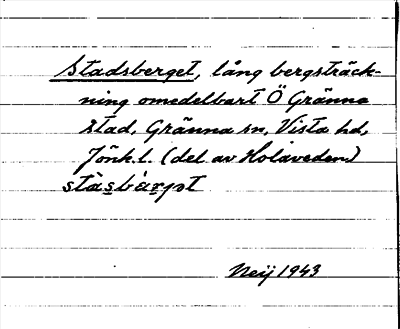 Stadsberget, lång bergsträck-
ning omedelbart Ö Gränna
stad, Gränna sn, Vista hd,
Jönk.l. (del av Holaveden)
stàsbàrjət
Neij 1943